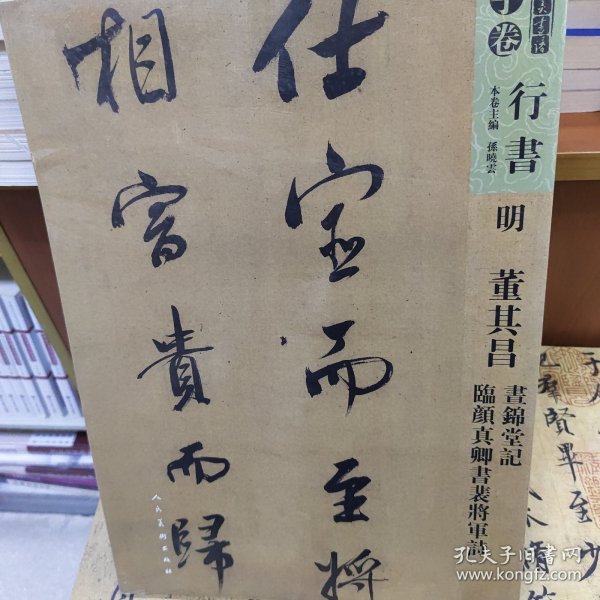 仕宦而至將
相富貴而歸
人民美術出版社
卷
行書
本卷主編 孫曉雲
明
董其昌
晝錦堂記
臨顔真卿書裴將軍詩
群賢畢至少
孔夫子旧书网
www.kongfz.com